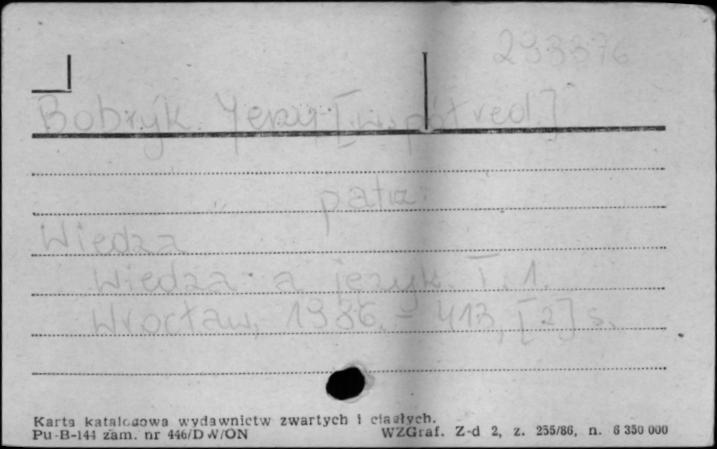 293376
Bobryk Jerzy [współred.]
patrz:
Wiedza
Wiedza a język. T. 1.
Wrocław, 1986. - 413, [2] s.
Karta katalogowa wydawnictw zwartych i ciągłych.
Pu-B-144 zam. nr 446/DW/ON
WZGraf. Z-d 2, z. 255/86, n. 6 350 000